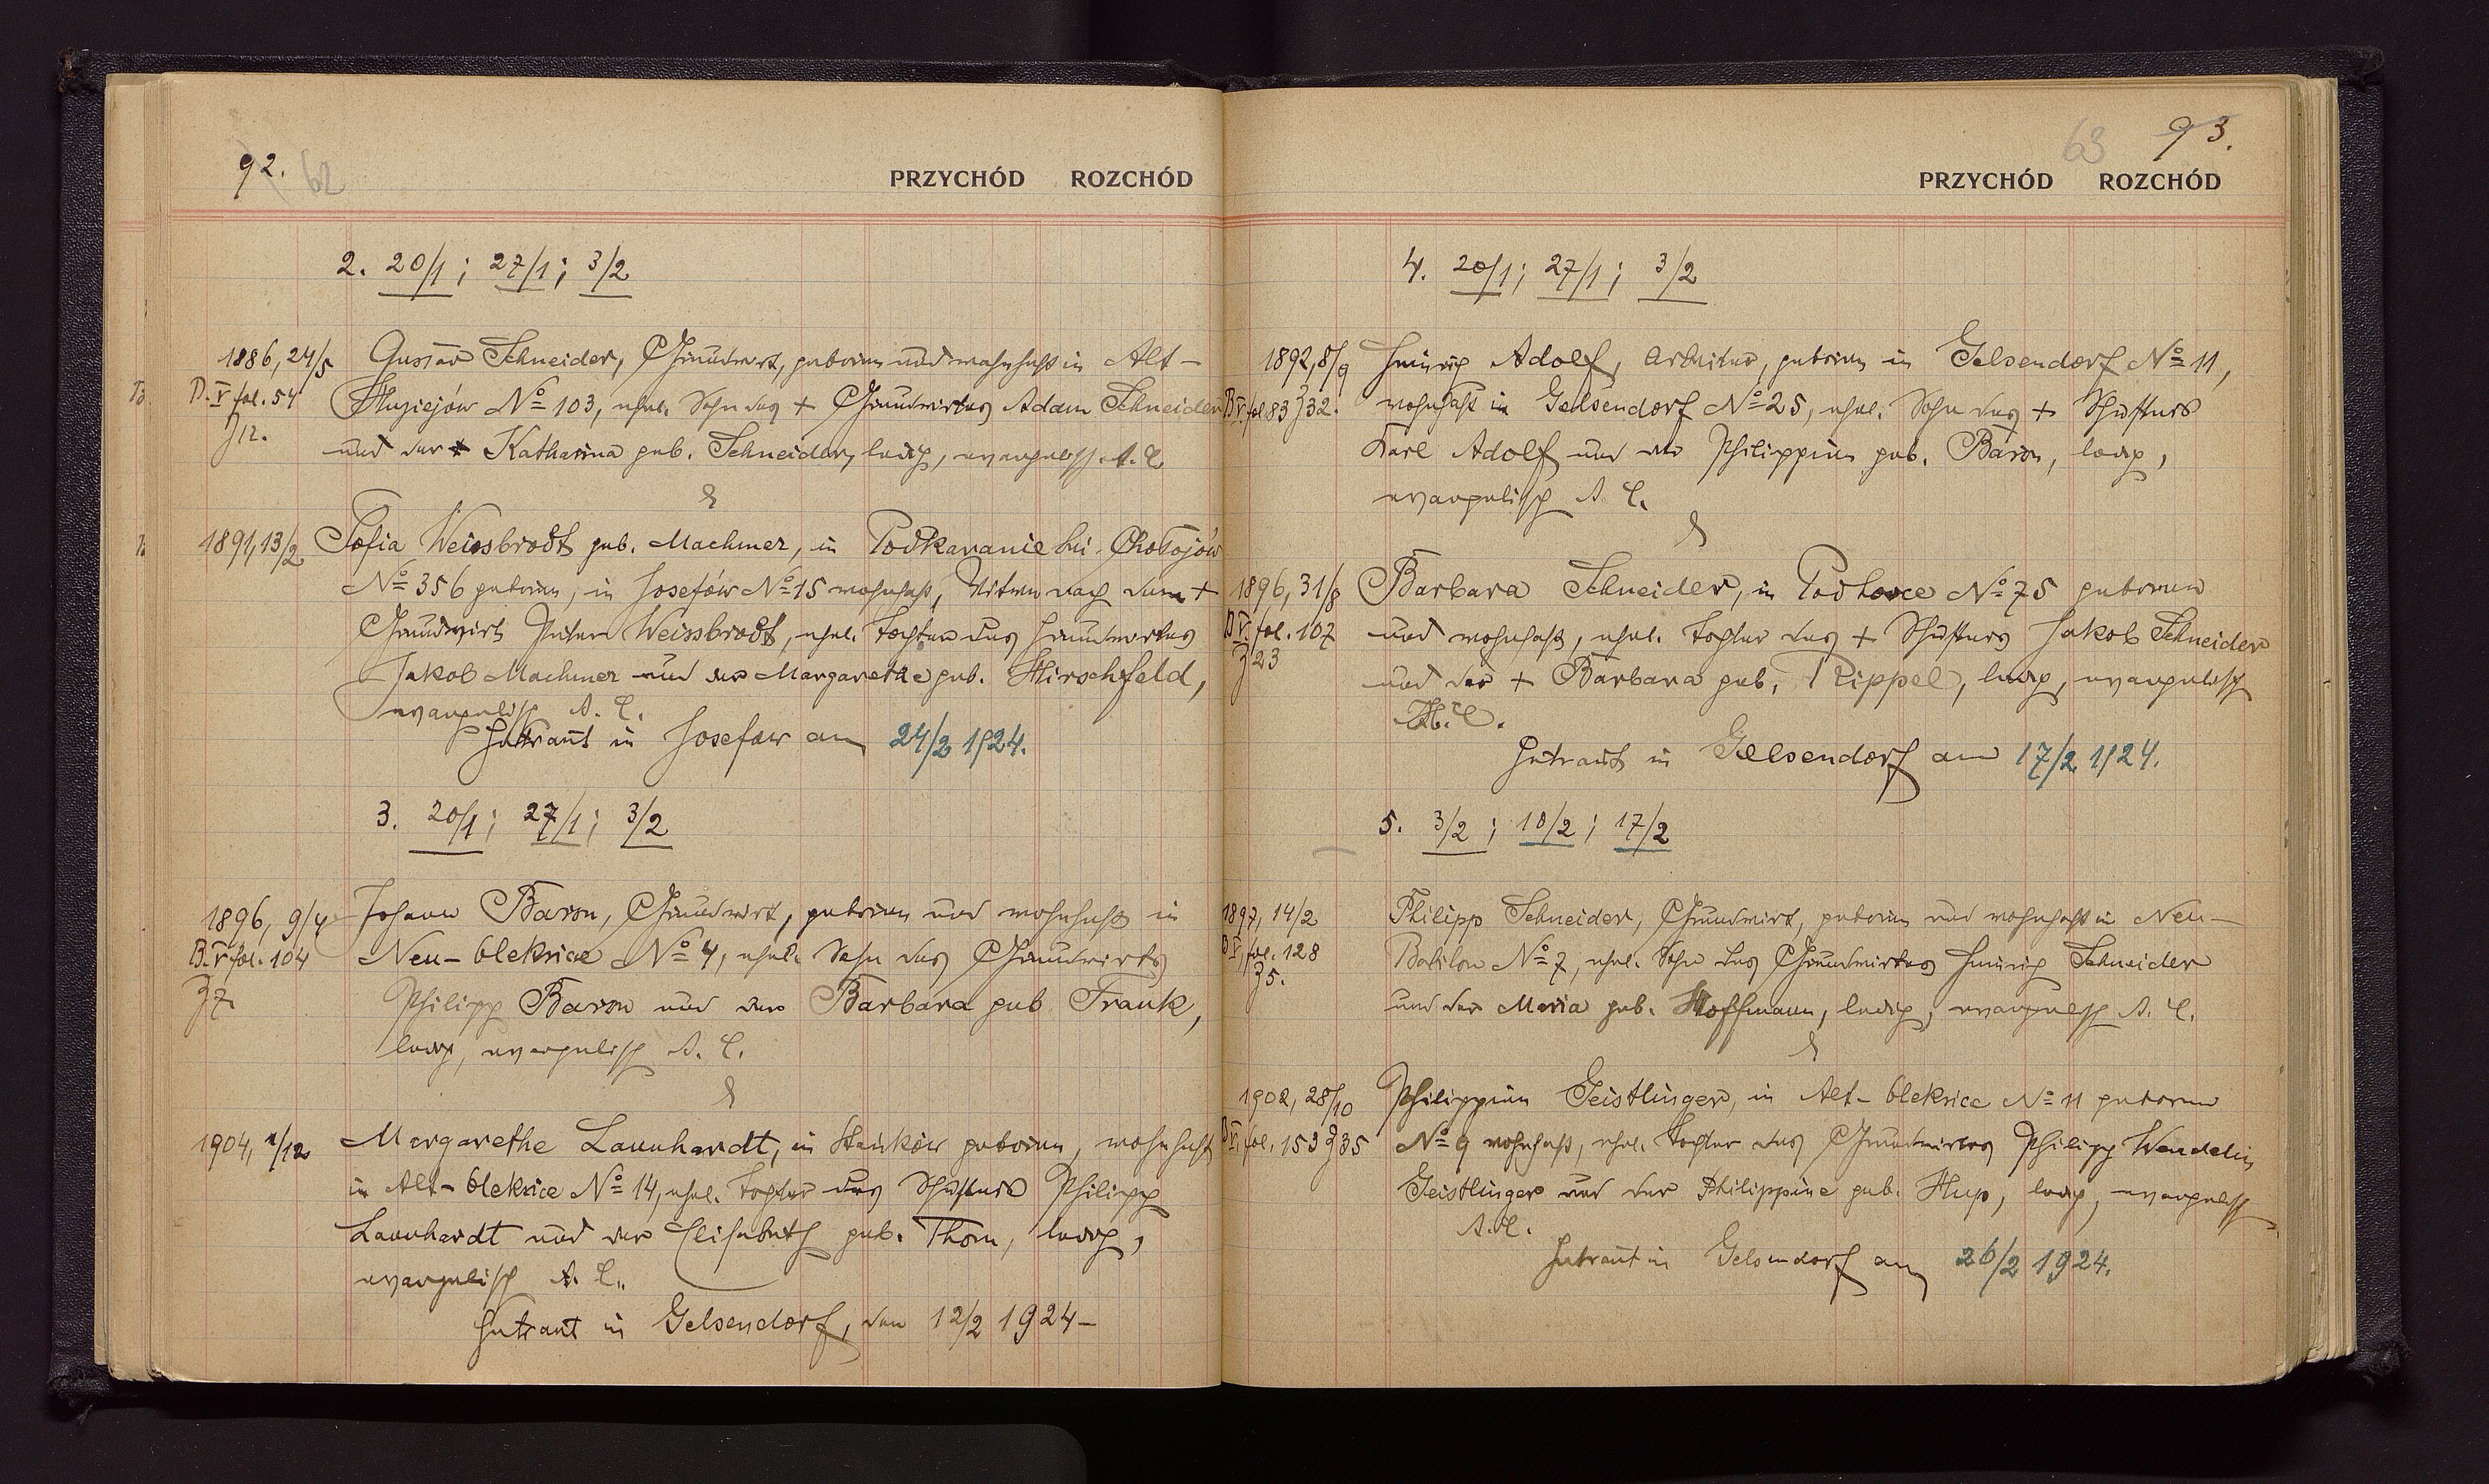 92. 62
PRZYCHÓD ROZCHÓD
2. 20/1; 27/1; 3/2
1886, 24/5 Gustav Schneider, Grundwirt, geboren und wohnhaft in Alt-
B. V fol. 54 No 103, ehel. Sohn des + Grundwirtes Adam Schneider
Z 12. und der + Katharina geb. Schneider, ledig, evangelisch A. C.
&
1891, 13/2 Sofia Weissbrodt geb. Machmer, in Podkaranie bei Chołojów
No 356 geboren, in Josefów No 15 wohnhaft, Witwe nach dem +
Grundwirt Peter Weissbrodt, ehel. Tochter des Grundwirtes
Jakob Machmer und der Margarethe geb. Hirschfeld,
evangelisch A. C.
Getraut in Josefow am 24/2 1924.
3. 20/1; 27/1; 3/2
1896, 9/4 Johann Baron, Grundwirt, geboren und wohnhaft in
B. V fol. 104 Neu-Oleksice No 4, ehel. Sohn des Grundwirts
Z 7. Philipp Baron und der Barbara geb Frank,
ledig, evangelisch A. C.
&
1904, 1/12 Margarethe Launhardt, in Stańków geboren, wohnhaft
in Alt-Oleksice No 14, ehel. Tochter des Schusters Philipp
Launhardt und der Elisabeth geb. Thom, ledig,
evangelisch A. C.
Getraut in Gelsendorf, den 12/2 1924-
63 93.
PRZYCHÓD ROZCHÓD
4. 20/1; 27/1; 3/2
1892, 8/9 Heinrich Adolf, Arbeiter, geboren in Gelsendorf No 11,
B V. fol 83 Z 32. wohnhaft in Gelsendorf No 25, ehel. Sohn des + Schusters
Karl Adolf und der Philippine geb. Baron, ledig,
evangelisch A. C.
&
1896, 31/8 Barbara Schneider, in Podhorce No 75 geboren
B V. fol. 107 und wohnhaft, ehel. Tochter des + Schusters Jakob Schneider
Z 23 und der + Barbara geb. Rippel, ledig, evangelisch
H. C.
Getraut in Gelsendorf am 17/2 1924.
5. 3/2; 10/2; 17/2
1897, 14/2 Philipp Schneider, Grundwirt, geboren und wohnhaft in Neu-
B V, fol. 128 Babilon No 7, ehel. Sohn des Grundwirtes Heinrich Schneider
Z 5. und der Maria geb. Hoffmann, ledig, evangelisch A. C.
&
1902, 28/10 Philippine Geistlinger, in Alt-Oleksice No 11 geboren
B V. fol. 153 Z 35 No 9 wohnhaft, ehel. Tochter des Grundwirtes Philipp Wendelin
Geistlinger und der Philippine geb. Hup, ledig, evangelisch
A. C.
Getraut in Gelsendorf am 26/2 1924.